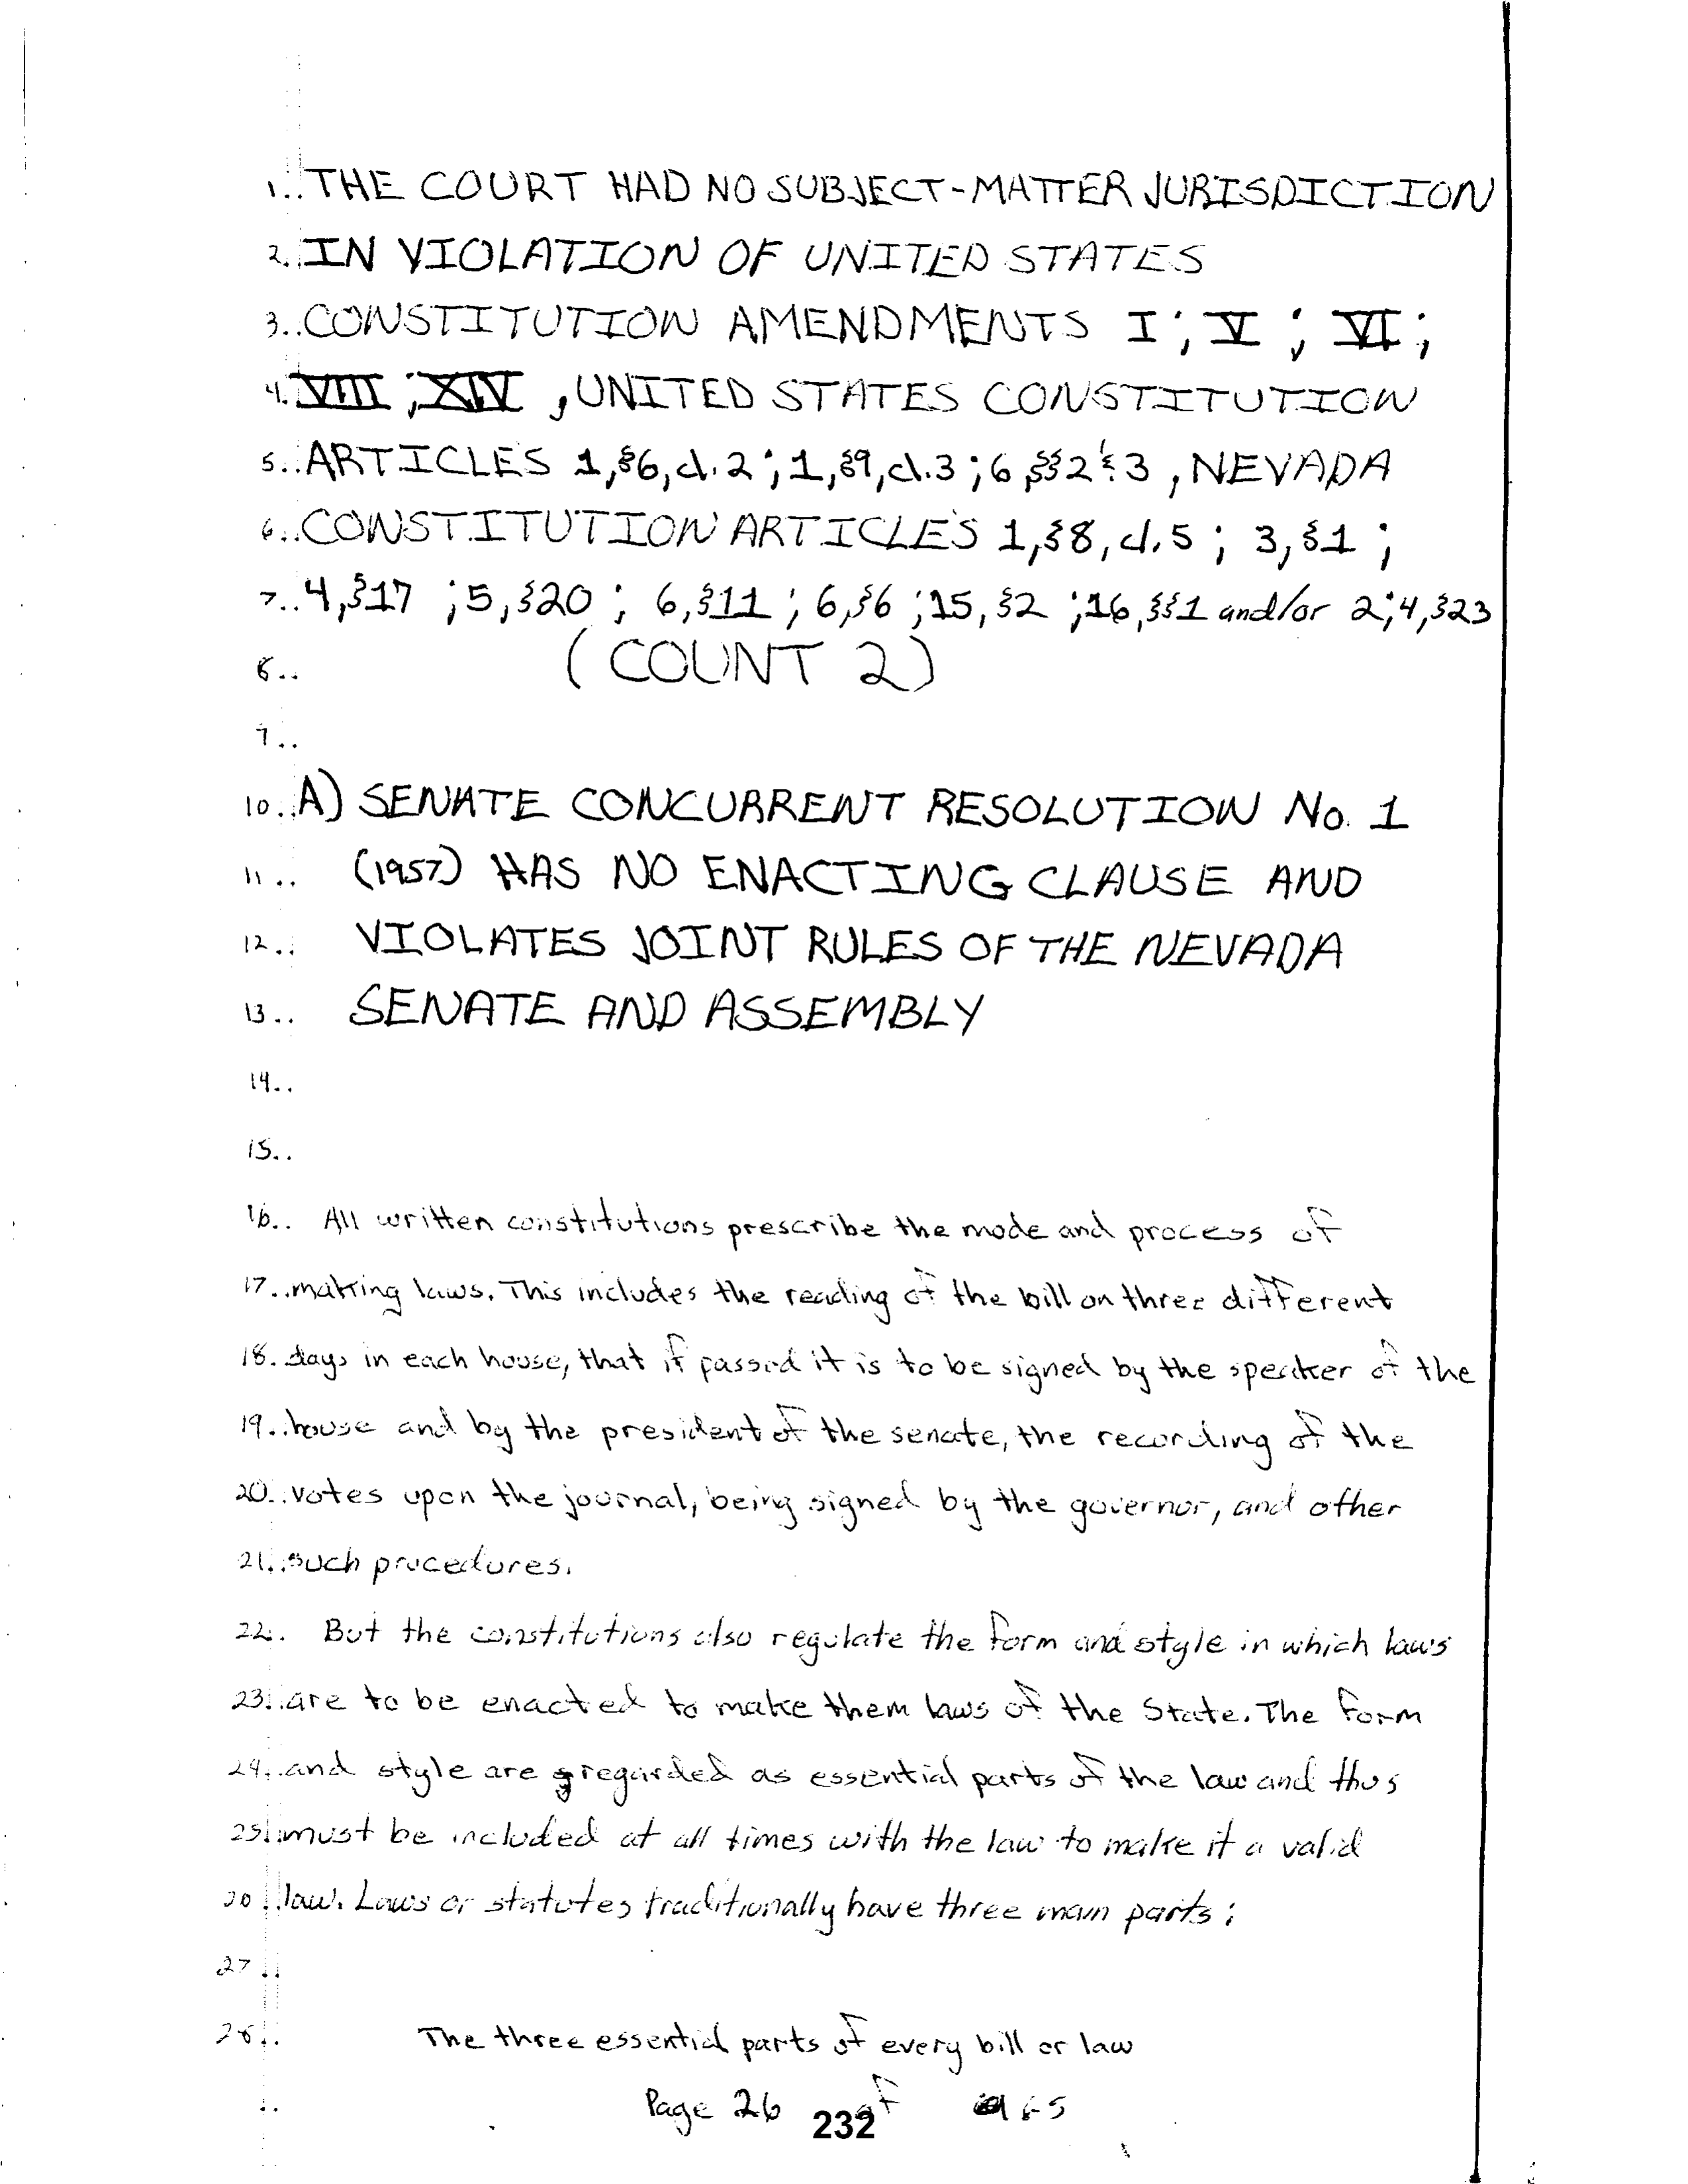 1.. THE COURT HAD NO SUBJECT-MATTER JURISDICTION
2. IN VIOLATION OF UNITED STATES
3.. CONSTITUTION AMENDMENTS I; V; VI;
4. VIII; XIV, UNITED STATES CONSTITUTION
5.. ARTICLES 1,§6,cl.2; 1,§9,cl.3; 6 §§2 & 3, NEVADA
6.. CONSTITUTION ARTICLES 1,§8,cl.5; 3,§1;
7.. 4,§17; 5,§20; 6,§11; 6,§6; 15,§2; 16,§§1 and/or 2; 4,§23
8.. (COUNT 2)
9..
10.. A) SENATE CONCURRENT RESOLUTION No. 1
11.. (1957) HAS NO ENACTING CLAUSE AND
12.. VIOLATES JOINT RULES OF THE NEVADA
13.. SENATE AND ASSEMBLY
14..
15..
16.. All written constitutions prescribe the mode and process of
17.. making laws. This includes the reading of the bill on three different
18. days in each house, that if passed it is to be signed by the speaker of the
19.. house and by the president of the senate, the recording of the
20.. votes upon the journal, being signed by the governor, and other
21.. such procedures.
22.. But the constitutions also regulate the form and style in which laws
23.. are to be enacted to make them laws of the State. The form
24.. and style are regarded as essential parts of the law and thus
25.. must be included at all times with the law to make it a valid
26.. law. Laws or statutes traditionally have three main parts;
27..
28.. The three essential parts of every bill or law
Page 26 of 65
232